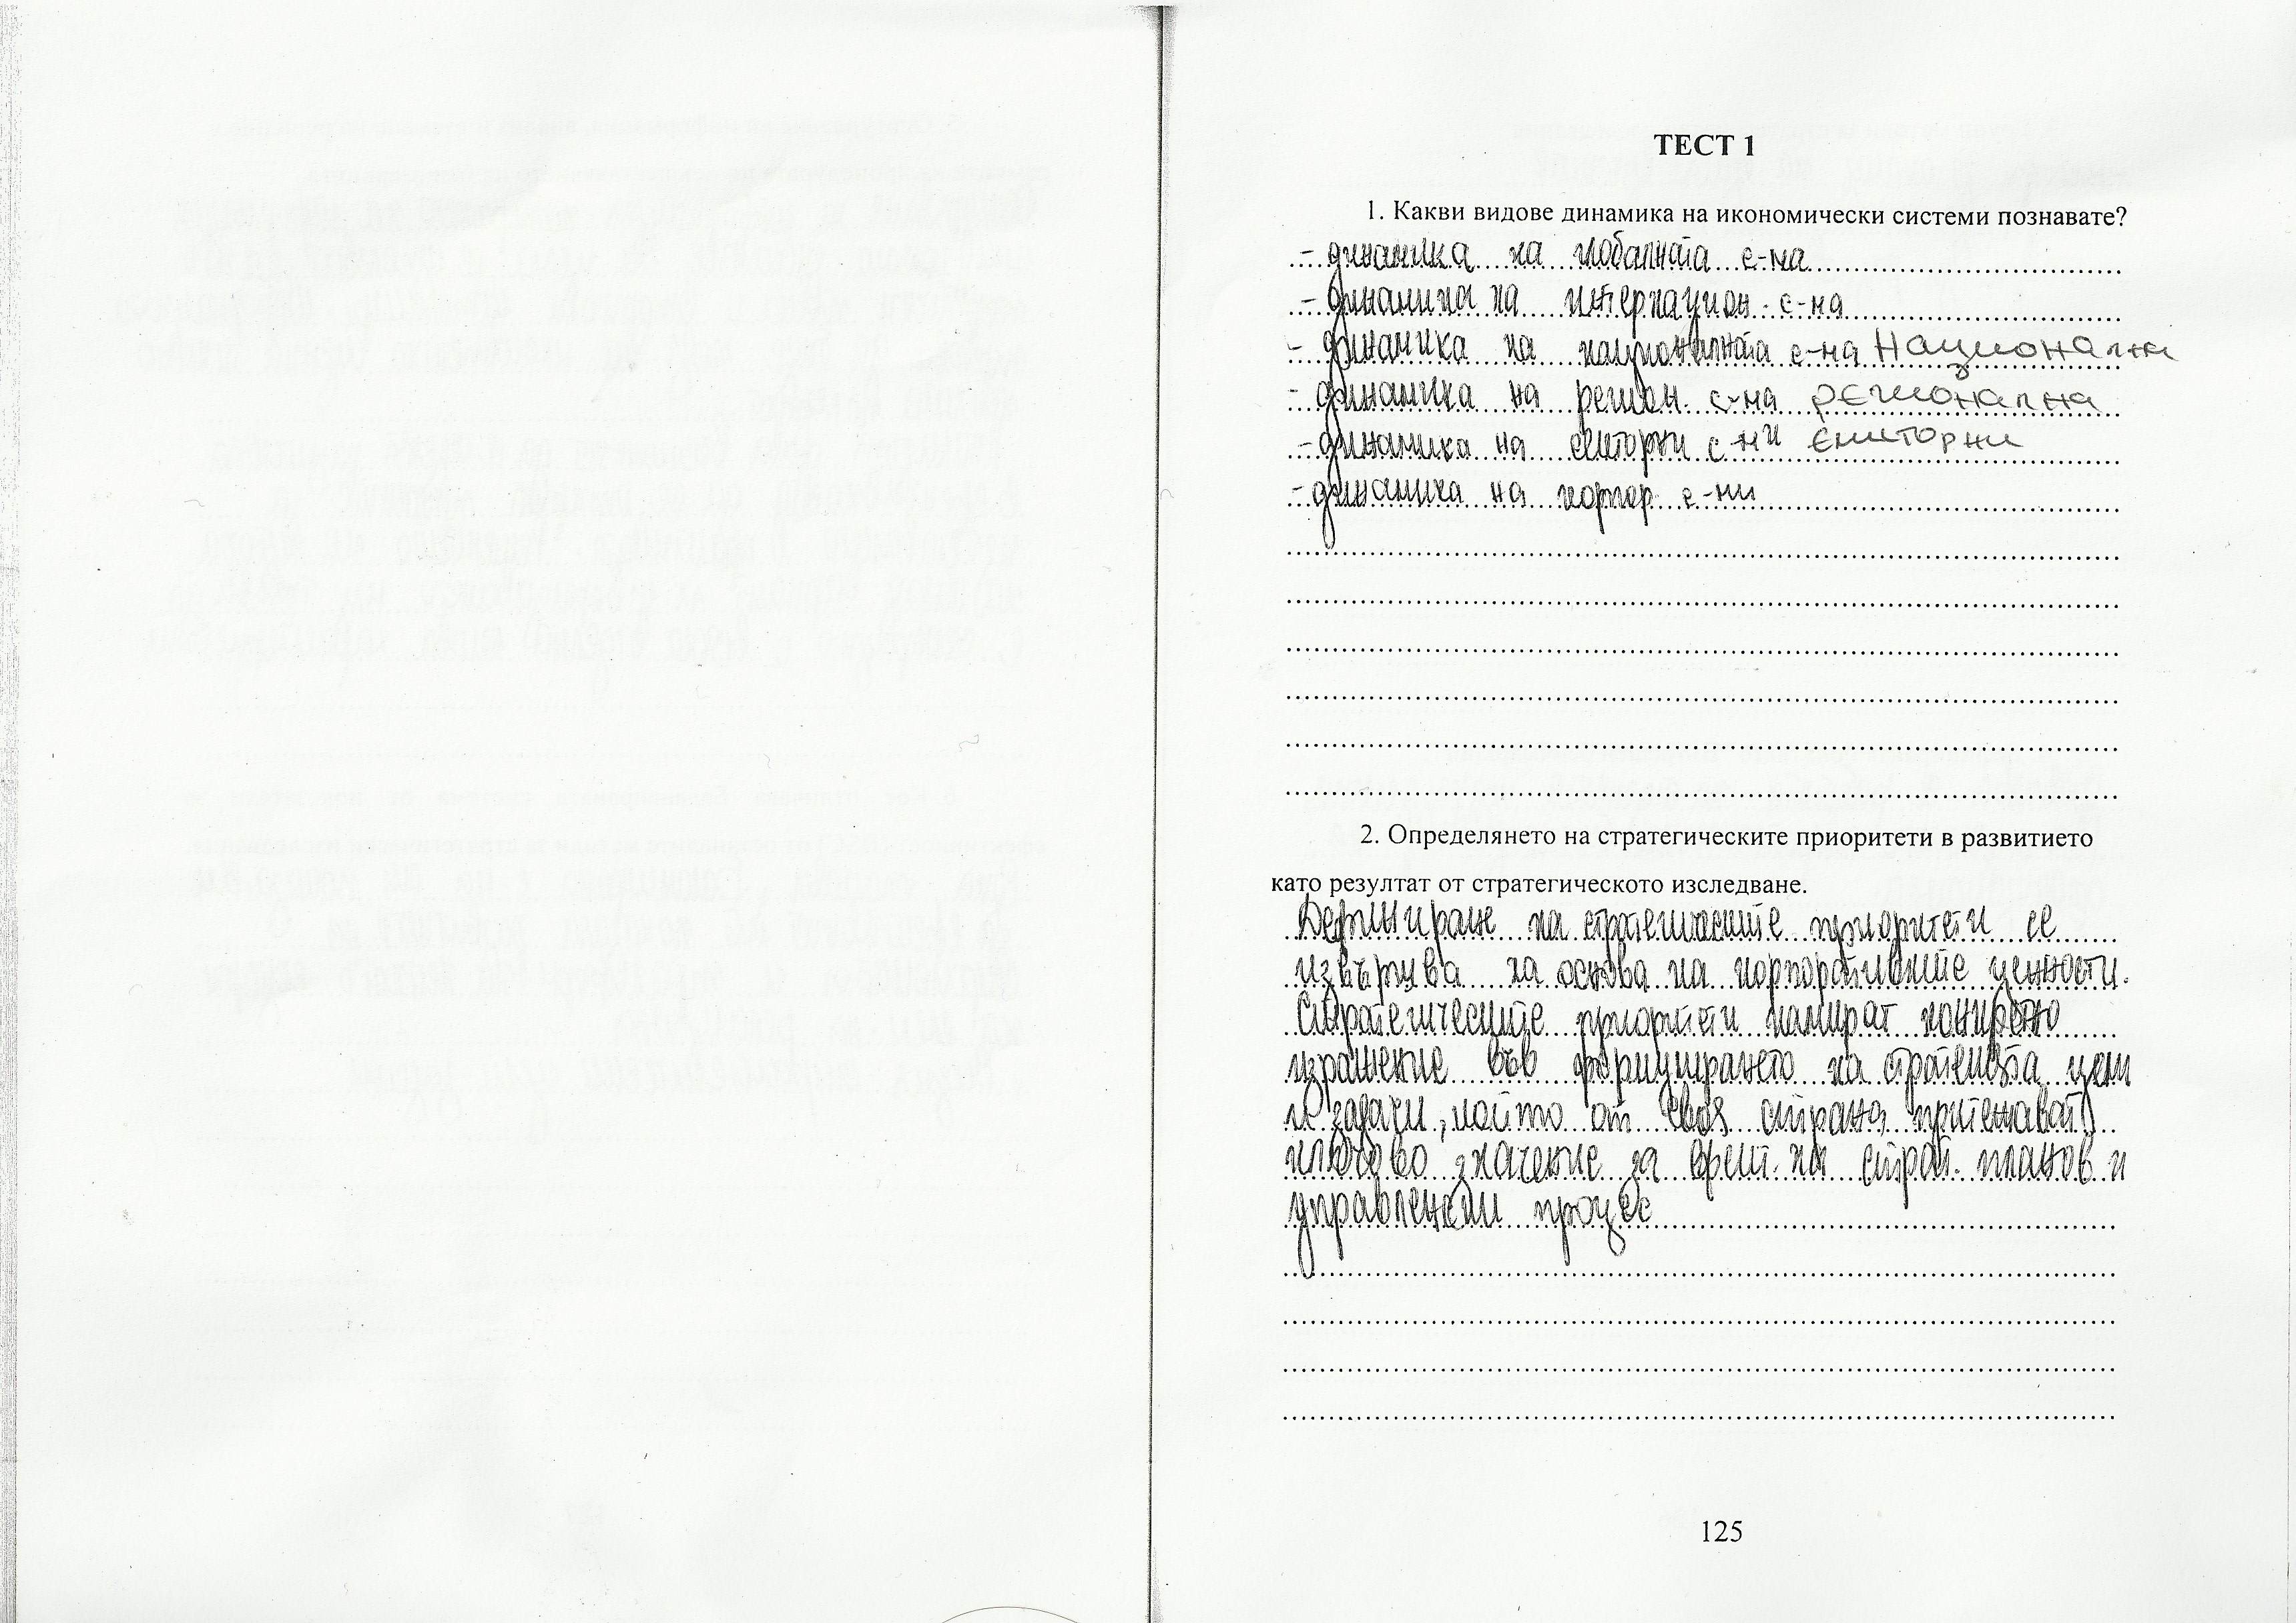 ТЕСТ 1
1. Какви видове динамика на икономически системи познавате?
- динамика на глобалната с-ма
- динамика на интернацион. с-ма
- динамика на националната с-ма Национална
- динамика на регион. с-ма регионална
- динамика на секторни с-ми секторни
- динамика на корпор. с-ми
2. Определянето на стратегическите приоритети в развитието
като резултат от стратегическото изследване.
Дефиниране на стратегическите приоритети се
извършва на основа на корпоративните ценности.
Стратегическите приоритети намират конкретно
изражение във формулирането на цели
и задачи, които от своя страна притежават
ключово значение за ефект. на страт. планов и
управленски процес
125